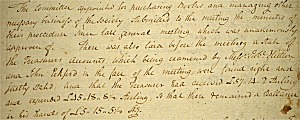 The Committee appointed for purchasing Books and managing other
necessary business of the Society Submitted to the meeting the minutes of
their procedure since last general meeting, which was unanimously
approven of. There was also laid before the meeting a State of
the Treasurers accounts which being examined by Messrs Robt
and John in the face of the meeting, were found right and
justly stated and that the Treasurer had received £37.13.2 Sterling
and expended £35.18. Sterling, So that there remained a Ballance
in his hands of £3.15.